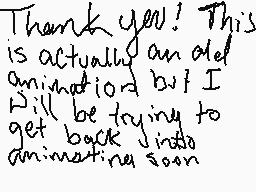 Thank you! This
is actually an old
animation but I
will be trying to
get back into
animating soon